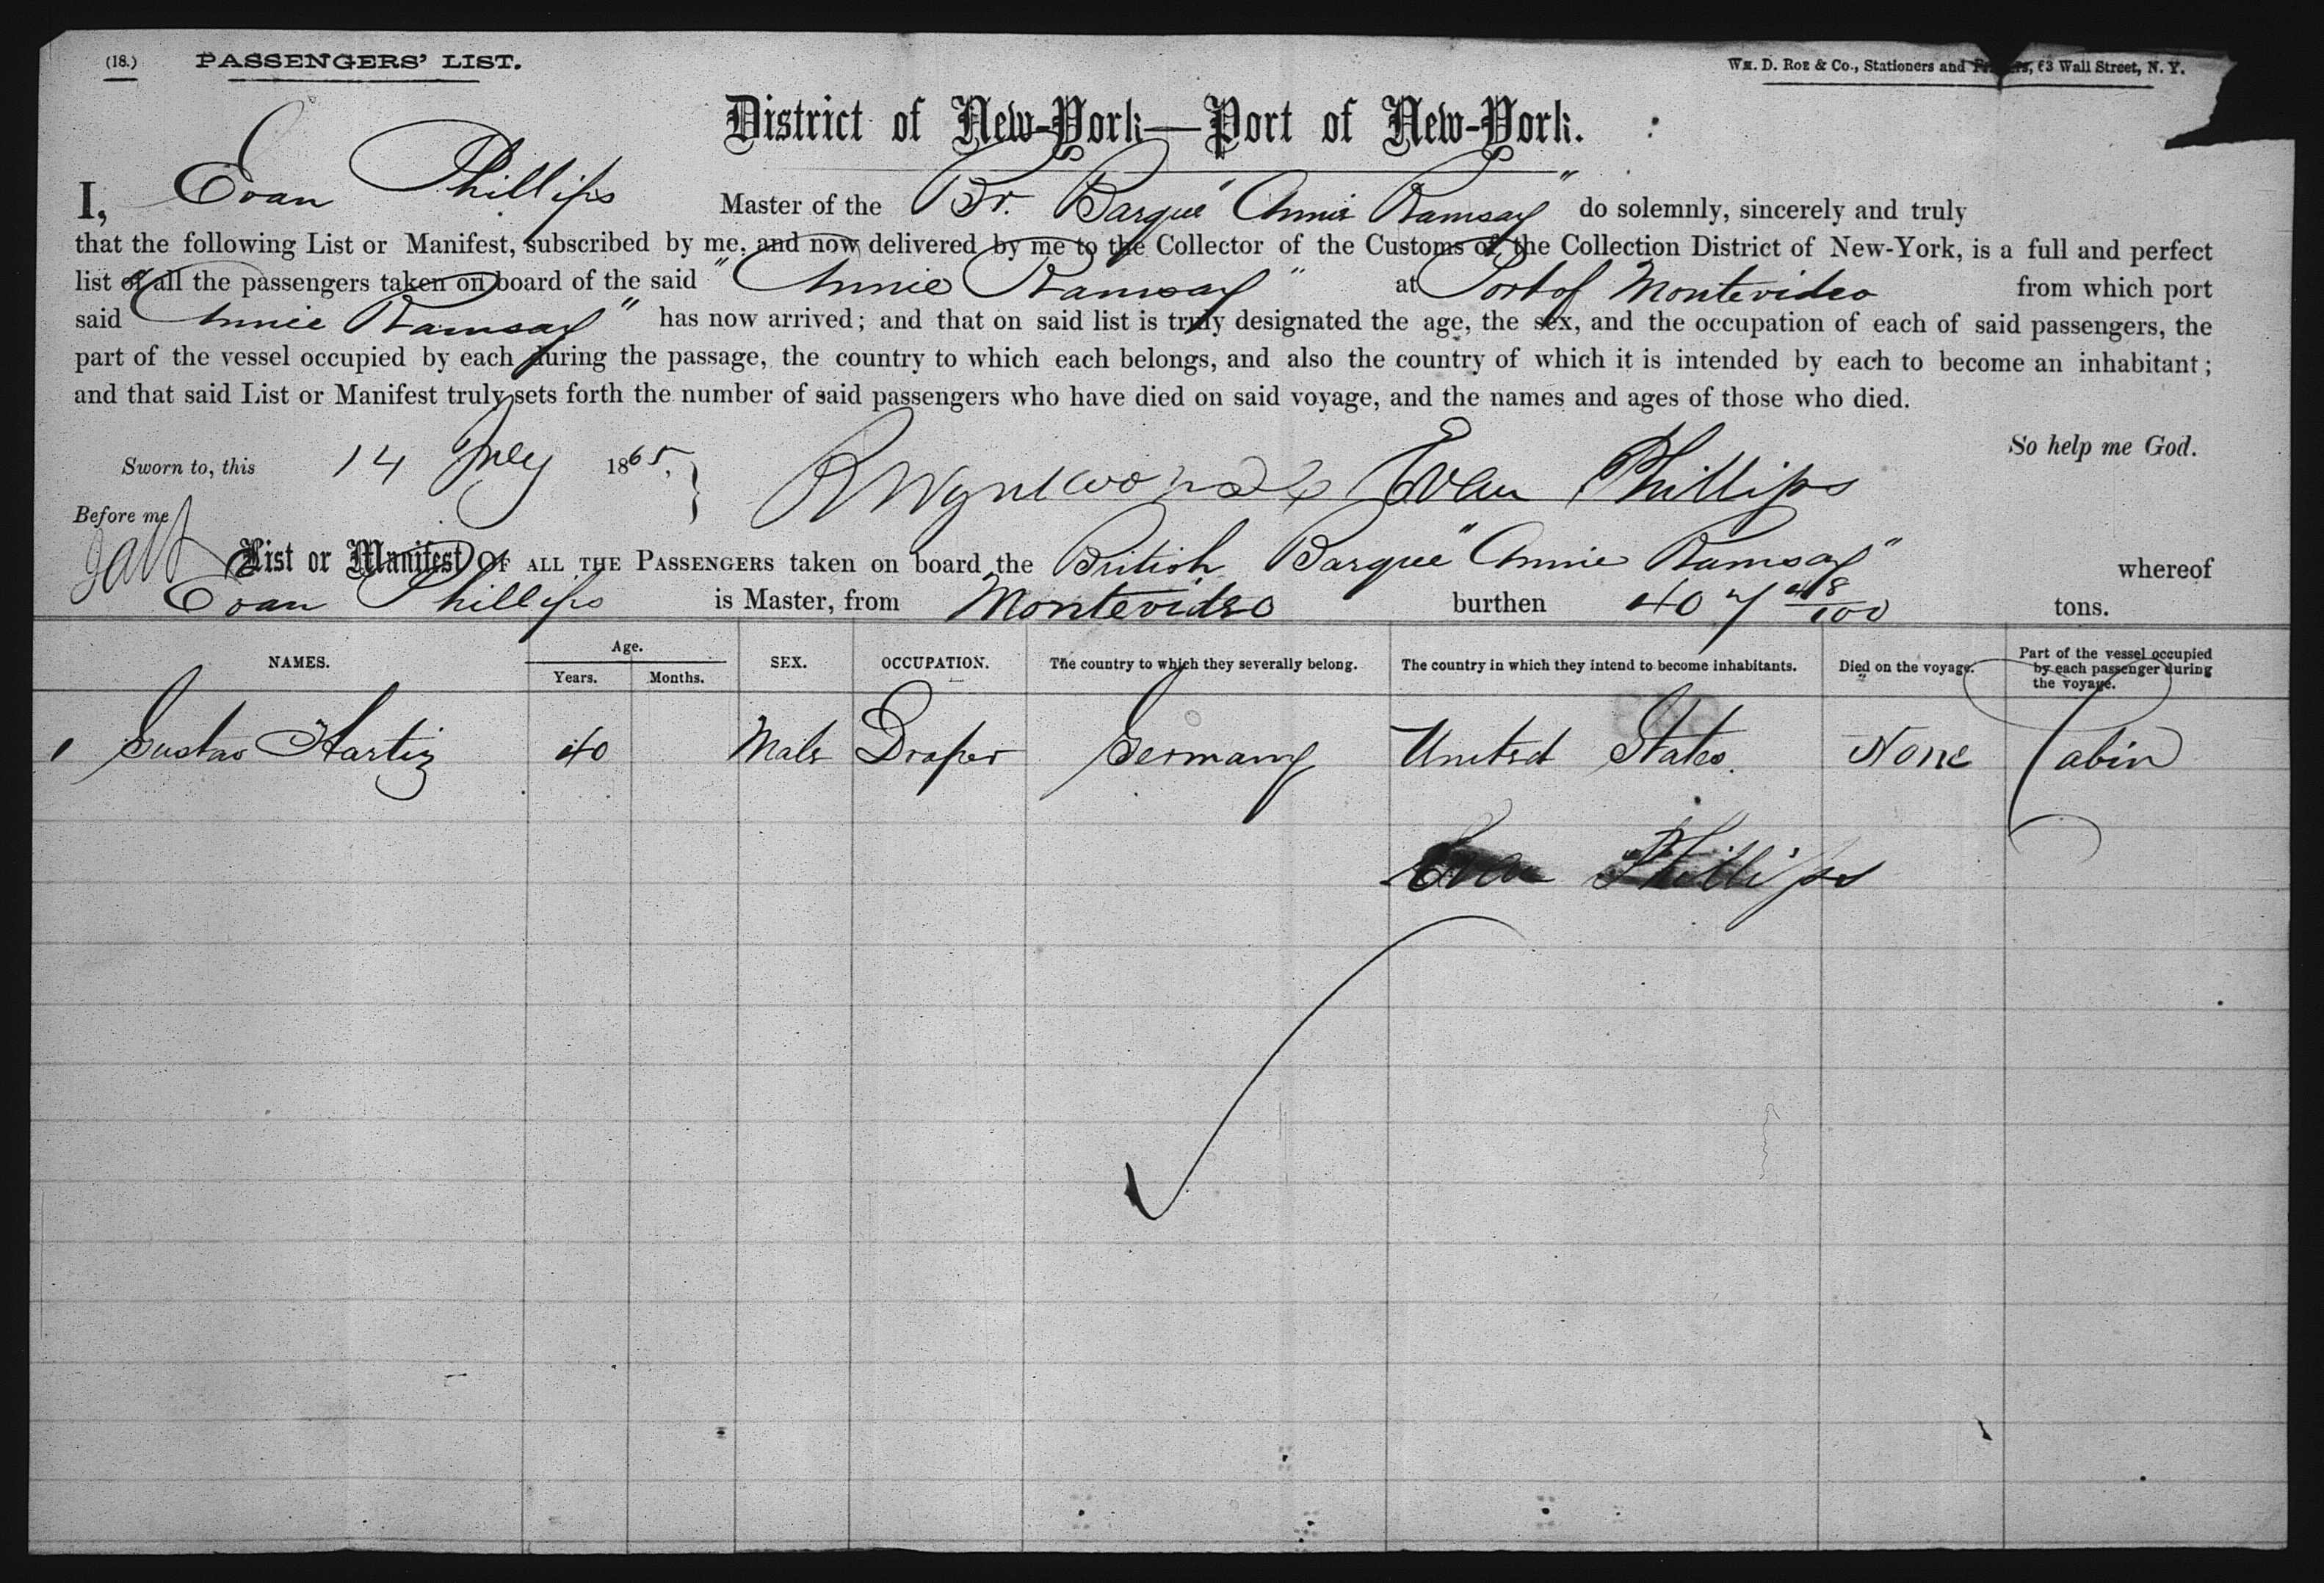 (18.) PASSENGERS' LIST. Wm. D. Roe & Co., Stationers and Printers, 63 Wall Street, N. Y.
District of New-York—Port of New-York.
I, Evan Phillips Master of the Br. Barque "Annie Ramsay" do solemnly, sincerely and truly
that the following List or Manifest, subscribed by me, and now delivered by me to the Collector of the Customs of the Collection District of New-York, is a full and perfect
list of all the passengers taken on board of the said "Annie Ramsay" at Port of Montevideo from which port
said "Annie Ramsay" has now arrived; and that on said list is truly designated the age, the sex, and the occupation of each of said passengers, the
part of the vessel occupied by each during the passage, the country to which each belongs, and also the country of which it is intended by each to become an inhabitant;
and that said List or Manifest truly sets forth the number of said passengers who have died on said voyage, and the names and ages of those who died.
So help me God.
Sworn to, this 14 July 1865, Evan Phillips
Before me
List or Manifest OF ALL THE PASSENGERS taken on board the British Barque "Annie Ramsay" whereof
Evan Phillips is Master, from Montevideo burthen 407 48/100 tons.
NAMES. Age. Years. Months. SEX. OCCUPATION. The country to which they severally belong. The country in which they intend to become inhabitants. Died on the voyage. Part of the vessel occupied by each passenger during the voyage.
1 Gustav Hartig 40 Male Draper Germany United States. None Cabin
Evan Phillips